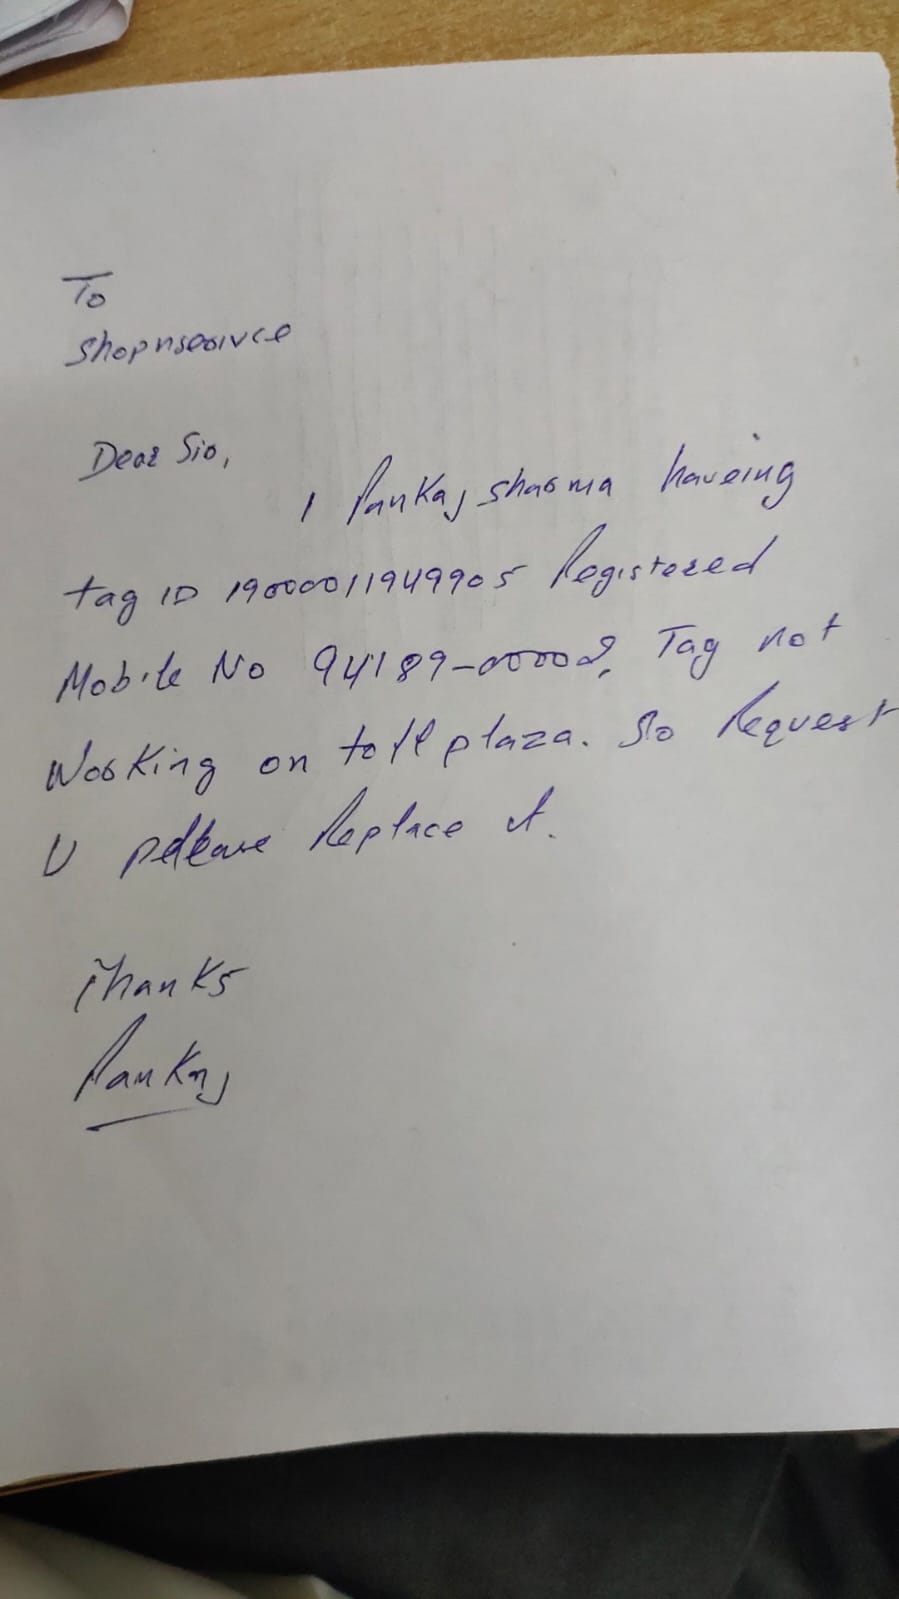 To
Shopnservice
Dear Sir,
I Pankaj sharma haveing
tag ID 19000011949905 Registered
Mobile No 94189-00008, Tag not
Working on toll plaza. So Request
U please Replace it.
Thanks
Pankaj